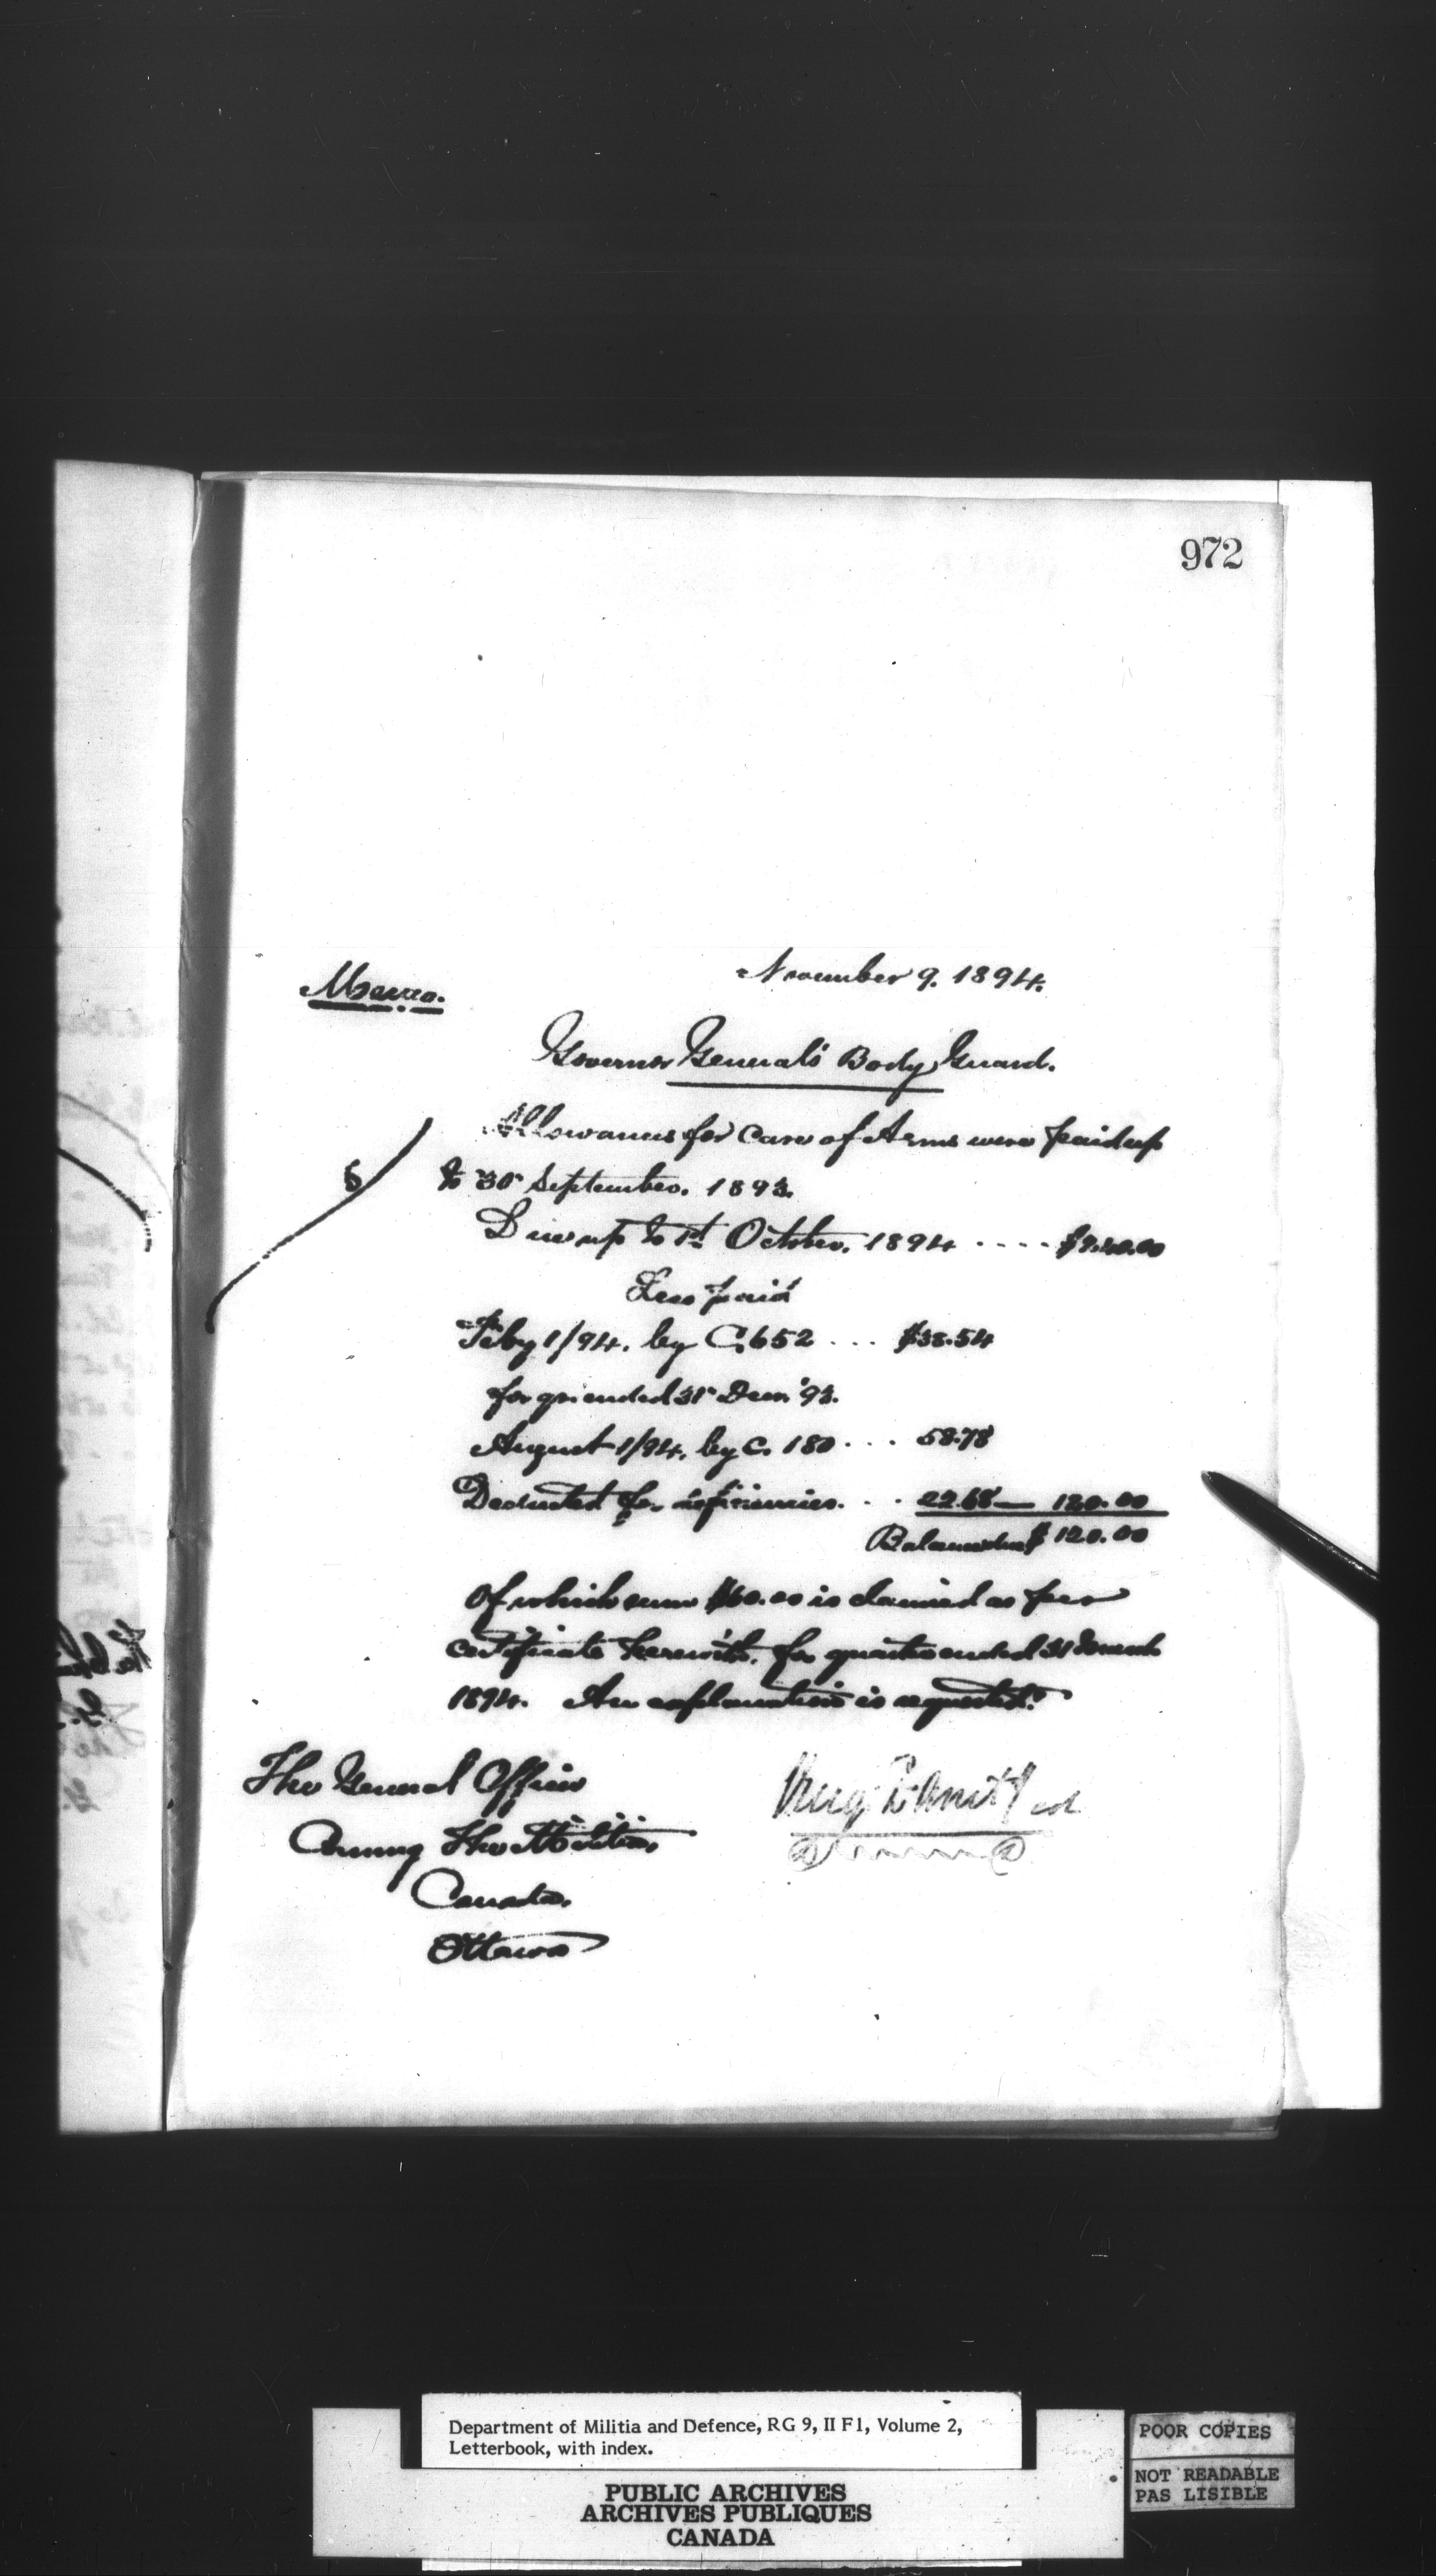 972
Memo.
November 9. 1894.
Governor General's Body Guard.
Allowances for Care of Arms were paid up
to 30 September. 1893.
Due up to 1st October. 1894 .... $240.00
Less paid
Feby 1/94. by C. 652 ... $38.54
for qr. ended 31 Decr. '93.
August 1/94. by C. 180 ... 58.78
Deducted for deficiencies. .. 22.68 — 120.00
Balance due $ 120.00
Of which sum $60.00 is claimed as per
certificate herewith, for quarter ended 31 March
1894. An explanation is requested.
The General Officer
Commg The Militia,
Canada.
Ottawa
Department of Militia and Defence, RG 9, II F1, Volume 2,
Letterbook, with index.
PUBLIC ARCHIVES
ARCHIVES PUBLIQUES
CANADA
POOR COPIES
NOT READABLE
PAS LISIBLE